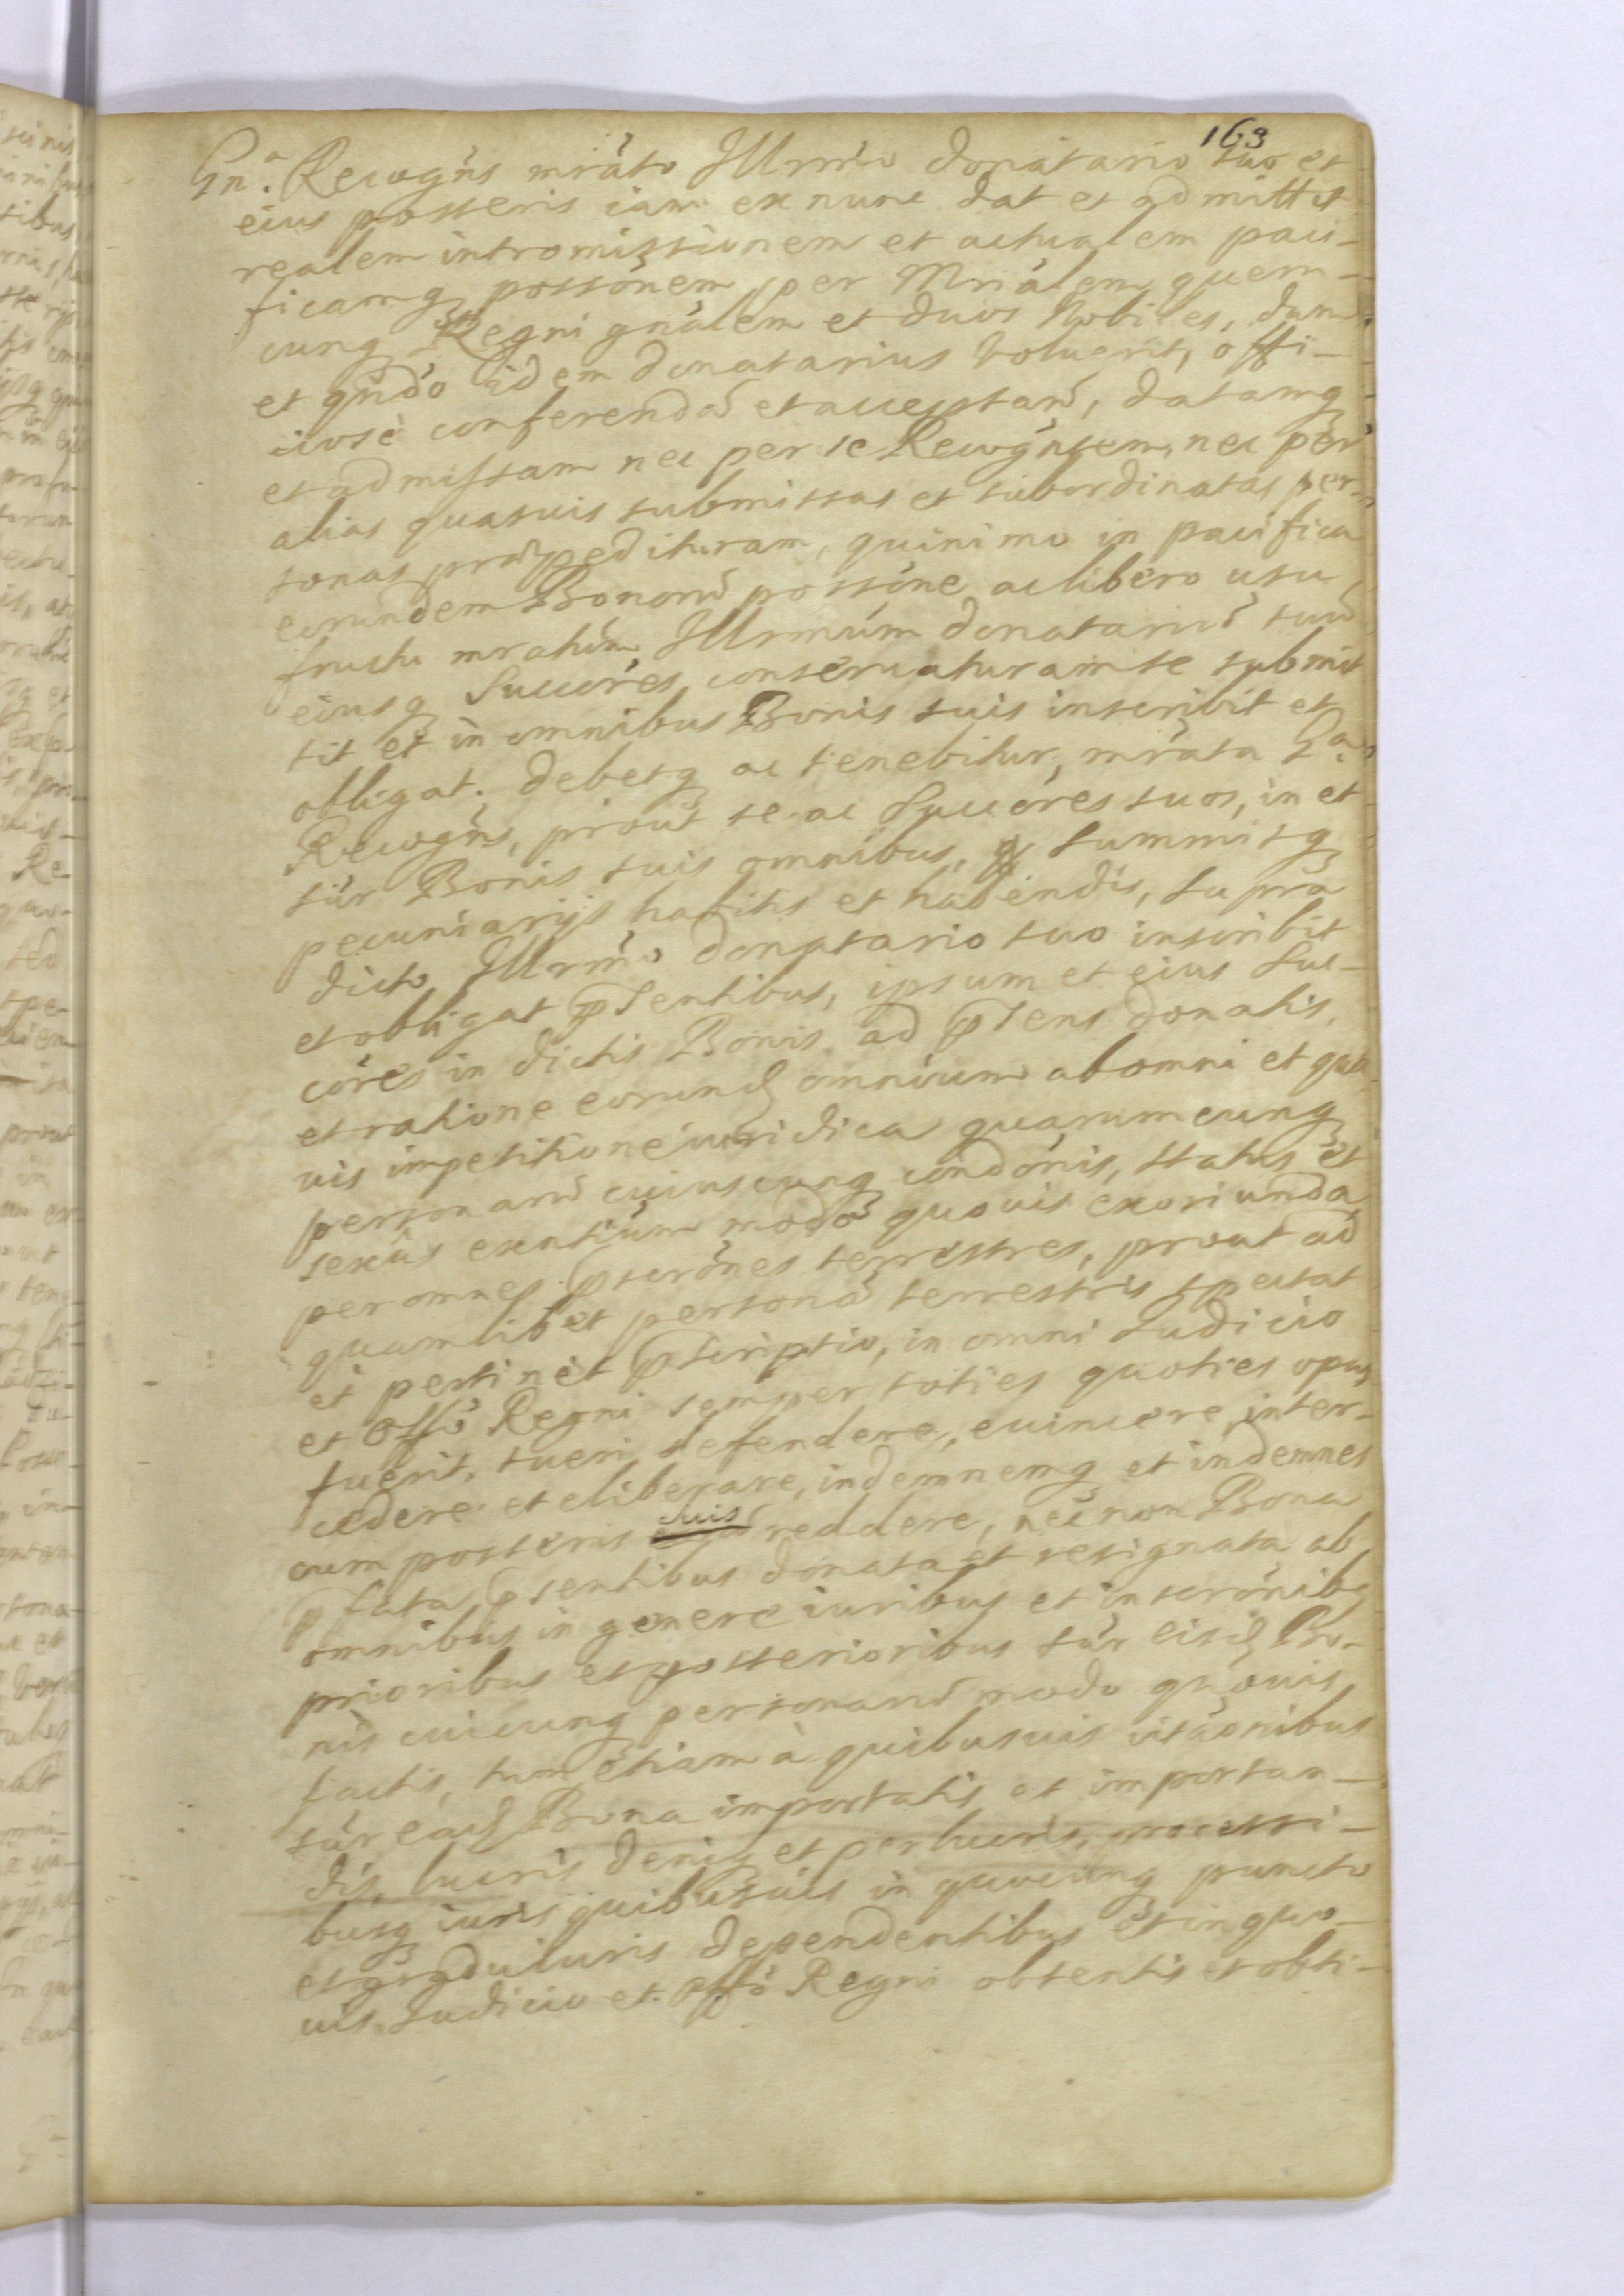 163
Gn.a Recogn̄s mrāto Illrm̄o donatario suo et
eius posteris iam ex nunc dat et admittit
realem intromissionem et actualem paci-
ficamq possōnem per Mriālem quem-
cunq Regni gnālem et duos Nobiles, dum
et qn̄do idem donatarius voluerit, offi-
ciose conferendā et acceptanā, datamq
et admissam nec per se Recogn̄tem, nec per
alias quasuis submissas et subordinatas per-
sonas præpedituram, quinimo in pacifica
eorundem Bonorū possōne, ac libero usu
fructu mratum Illrmūm donatariū suū
eiusq Succōres conseruaturam se submit
tit et in omnibus Bonis suis inscribit et
obligat. Debetq ac tenebitur, mrāta Ga.
Recogn̄s, prout se ac Succōres suos, in et
sūr Bonis suis omnibus, Summisq
pecuniarijs habitis et habendis, supra
dicto Illrm̄o donatario suo inscribit
et obligat pn̄sentibus, ipsum et eius Suc-
cōres in dictis Bonis ad pn̄sens donatis,
et ratione eorund omnium ab omni et qua-
uis impetitione iuridica quarumcunq
personarū cuiuscunq condōnis, status et
sexus exntium modō quouis exoriunda
per omnes pscrōnes terrestres, prout ad
quamlibet personā terrestris spectat
et pertinet pscriptio, in omni Iudicio
et Offō Regni semper toties quoties opus
fuerit, tueri defendere, euincere inter-
cedere et eliberare, indemnemq et indemnes
cum posteris suis reddere, nec non Bona
pfata psentibus donata et resignata ab
omnibus in genere iuribus et inscrōnibq
prioribus et posterioribus sūr eisd Bo-
nis cuicunq personarū modo quouis
factis, tum etiam à quibusuis citāonibus
sūr ead Bona importatis et importan-
dis, lucris deniq et perlucris, processi-
busq iuris quibusuis in quocunq puncto
et gradu Iuris dependentibus et in quo-
uis Iudicio et Offō Regni obtentis et obti-